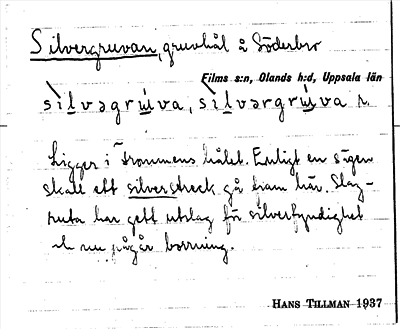 Silvergruvan, gruvhål å Söderbro
Films s:n, Olands h:d, Uppsala län
silvəgruva, silvərgruva
Ligger i Trommens hålet. Enligt en sägen
skall ett silverstreck gå fram här. Slag-
ruta har gett utslag för silverfyndighet
och nu pågår borrning.
HANS TILLMAN 1937